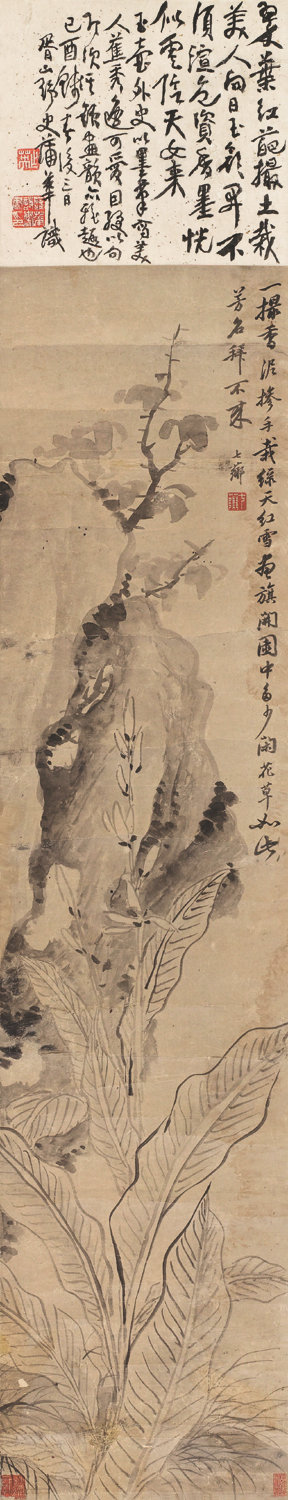 翠葉紅葩撮土栽
美人向日玉顏開不
須渲色資唐墨恍
似雲階天女來
玉壺外史以墨筆寫美
人蕉秀逸可愛因題以句
即次其韻亦雅趣也
己酉春後三日
胥山野史蒲華識
一撮香泥摻手栽綠天紅雪畫旗開園中多少閒花草如此
芳名拜不來
七薌